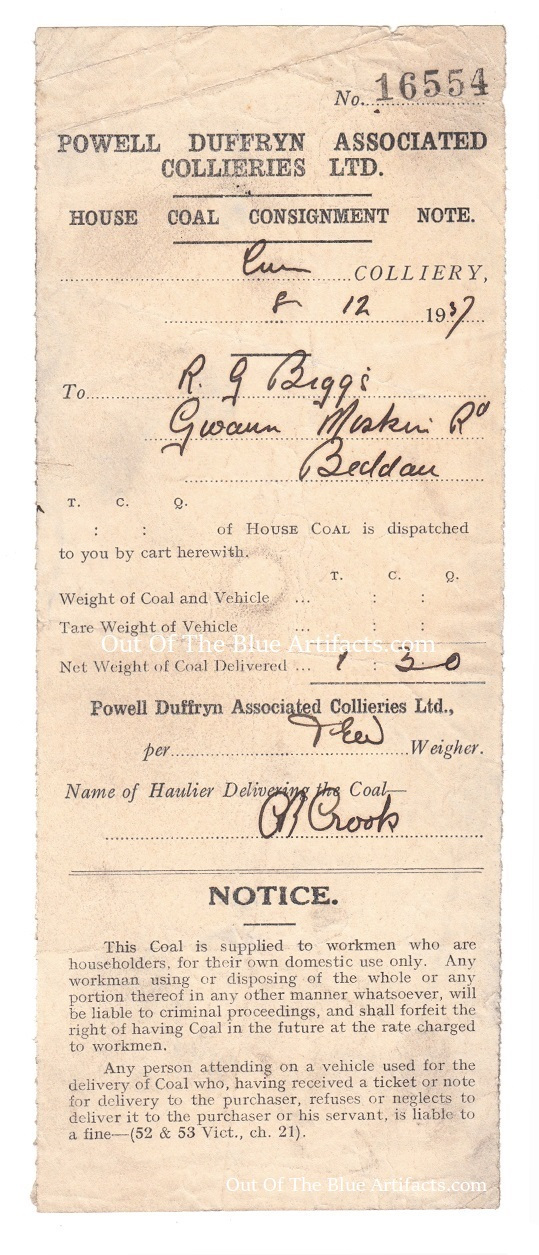 No. 16554
POWELL DUFFRYN ASSOCIATED
COLLIERIES LTD.
HOUSE COAL CONSIGNMENT NOTE.
Cwm COLLIERY,
8 12 1937
To R. G Biggs
Gwaun Miskin Rd
Beddau
T. C. Q.
: : of HOUSE COAL is dispatched
to you by cart herewith.
T. C. Q.
Weight of Coal and Vehicle ... : :
Tare Weight of Vehicle ... : :
Out Of The Blue Artifacts.com
Net Weight of Coal Delivered ... 1 : 3 0
Powell Duffryn Associated Collieries Ltd.,
per Weigher.
Name of Haulier Delivering the Coal—
Crook
NOTICE.
This Coal is supplied to workmen who are
householders, for their own domestic use only. Any
workman using or disposing of the whole or any
portion thereof in any other manner whatsoever, will
be liable to criminal proceedings, and shall forfeit the
right of having Coal in the future at the rate charged
to workmen.
Any person attending on a vehicle used for the
delivery of Coal who, having received a ticket or note
for delivery to the purchaser, refuses or neglects to
deliver it to the purchaser or his servant, is liable to
a fine—(52 & 53 Vict., ch. 21).
Out Of The Blue Artifacts.com